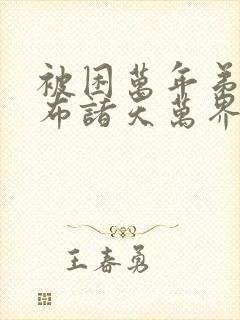 被困萬年弟
布諸天萬界
王春勇